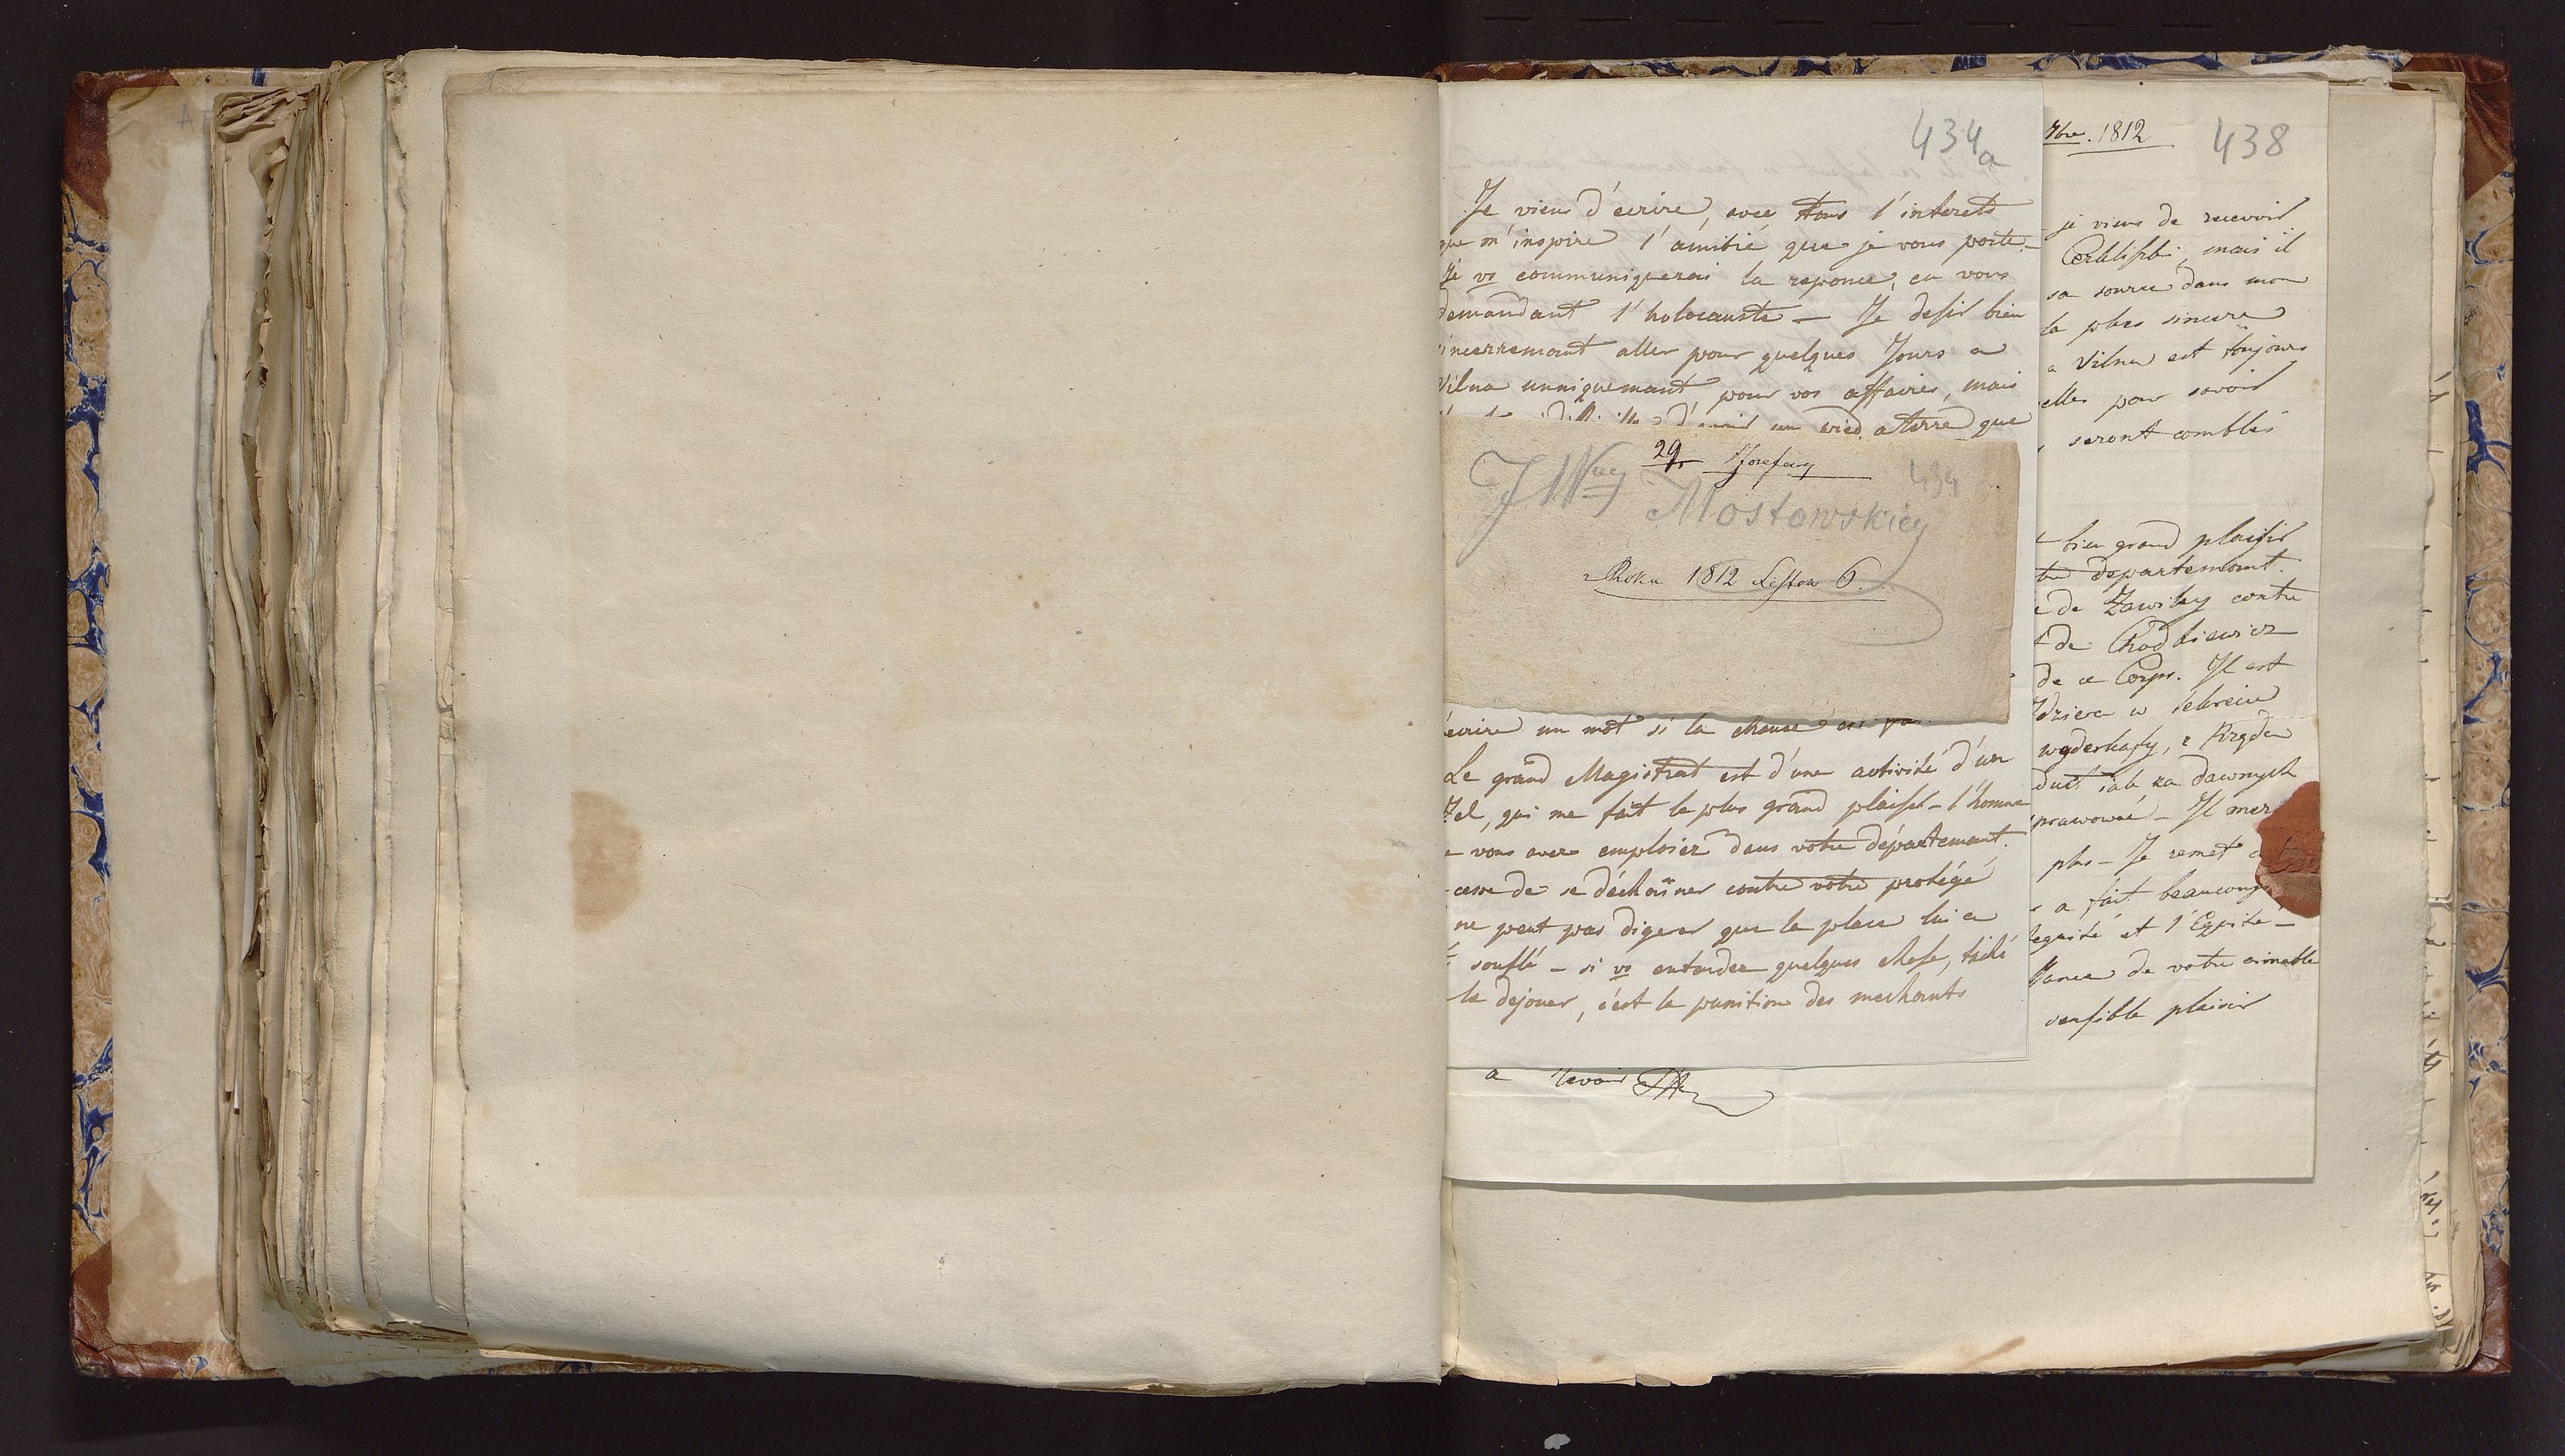 434a
Je viens d'ecrire, avec tous l'interets
que m'inspire l'amitié que je vous porte –
Je vs communiquerai la reponce, en vous
demandant l'holocauste – Je desir bien
sincerremant aller pour quelques Jours a
Vilna unniquemant pour vos affaires, mais
d'avoir un pied a terre que
29 Xjorefowy
434
JWgo Mostowskiego
Roku 1812 Listow 6.
ecrire un mot si la chause est
Le grand Magistrat est d'une activité d'un
Zel, qui me fait le plus grand plaisir – l'homme
vous avez emploiez dans votre département.
cesse de se déchainer contre votre protégé
ne peut pas digerer que la place lui a
souflé – si vs entendez quelques chose, taché
le dejouer, c'est la punition des mechants
a revoir
438
7bre. 1812
je viens de recevoir
mais il
sa source dans mon
la plus sincere
a Vilna est toujours
elles pour savoir
seront comblés
bien grand plaisir
departemant.
de Zawiley contre
de Chodkiewicz
de ce Corps. Il est
w
wyderkafy, z Kryden
iak za dawnych
sprawować – Il mer
plus – Je remet a
a fait beaucoup
et l'Equité –
de votre aimable
sensible plaisir